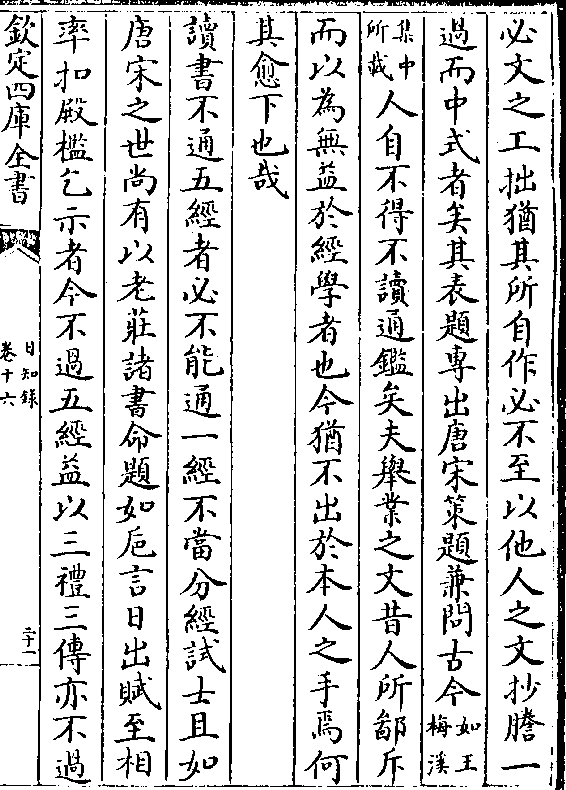 必文之工拙猶其所自作必不至以他人之文抄謄一
過而中式者矣其表題專出唐宋策題兼問古今如王梅溪
集中所載人自不得不讀通鑑矣夫舉業之文昔人所鄙斥
而以為無益於經學者也今猶不出於本人之手焉何
其愈下也哉
讀書不通五經者必不能通一經不當分經試士且如
唐宋之世尚有以老莊諸書命題如巵言日出賦至相
率扣殿檻乞示者今不過五經益以三禮三傳亦不過
欽定四庫全書
日知錄
卷十六
二十一